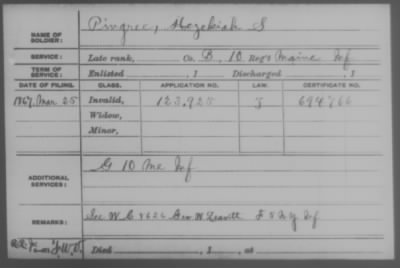 NAME OF SOLDIER: Pingree, Hezekiah S
SERVICE: Late rank, Co. B, 10 Reg't Maine Inf
TERM OF SERVICE: Enlisted , 1 Discharged , 1
DATE OF FILING. CLASS. APPLICATION NO. LAW. CERTIFICATE NO.
1867, Mar 25 Invalid, 123,925 694766
Widow,
Minor,
ADDITIONAL SERVICES: G 10 Me Inf
REMARKS: See W.C. 4626 Geo. W. Leavitt F 5 N.Y. Inf
Died , 1 , at